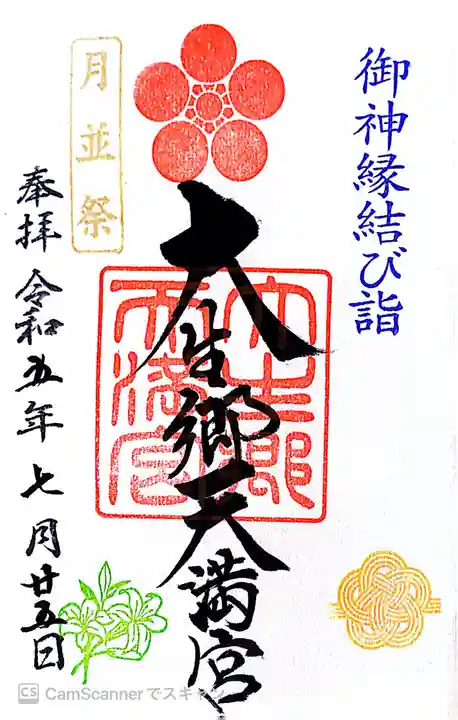 御神縁結び詣
大生郷天満宮
大生郷天満宮
月並祭
奉拝 令和五年七月廿五日
CS CamScannerでスキャン